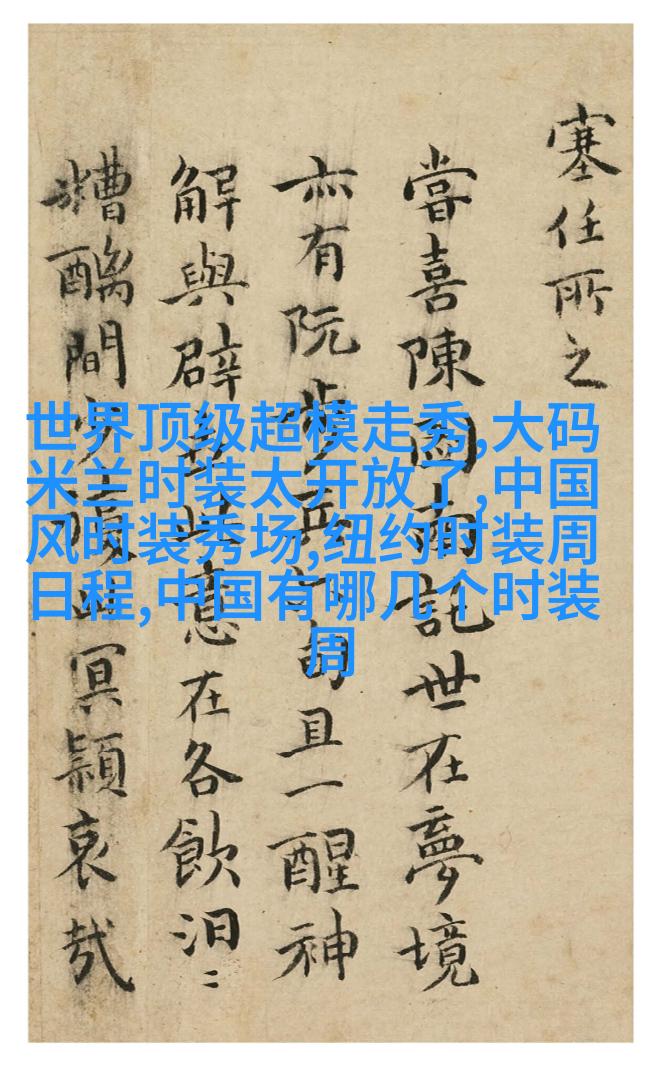 塞任所之
嘗喜陳國南託世在夢境
亦有阮步兵胡且一醒神
解與辟意在各飲汨〻
糟醨間冥穎哀哉
世界顶级超模走秀,大码
米兰时装太开放了,中国
风时装秀场,纽约时装周
日程,中国有哪几个时装
周